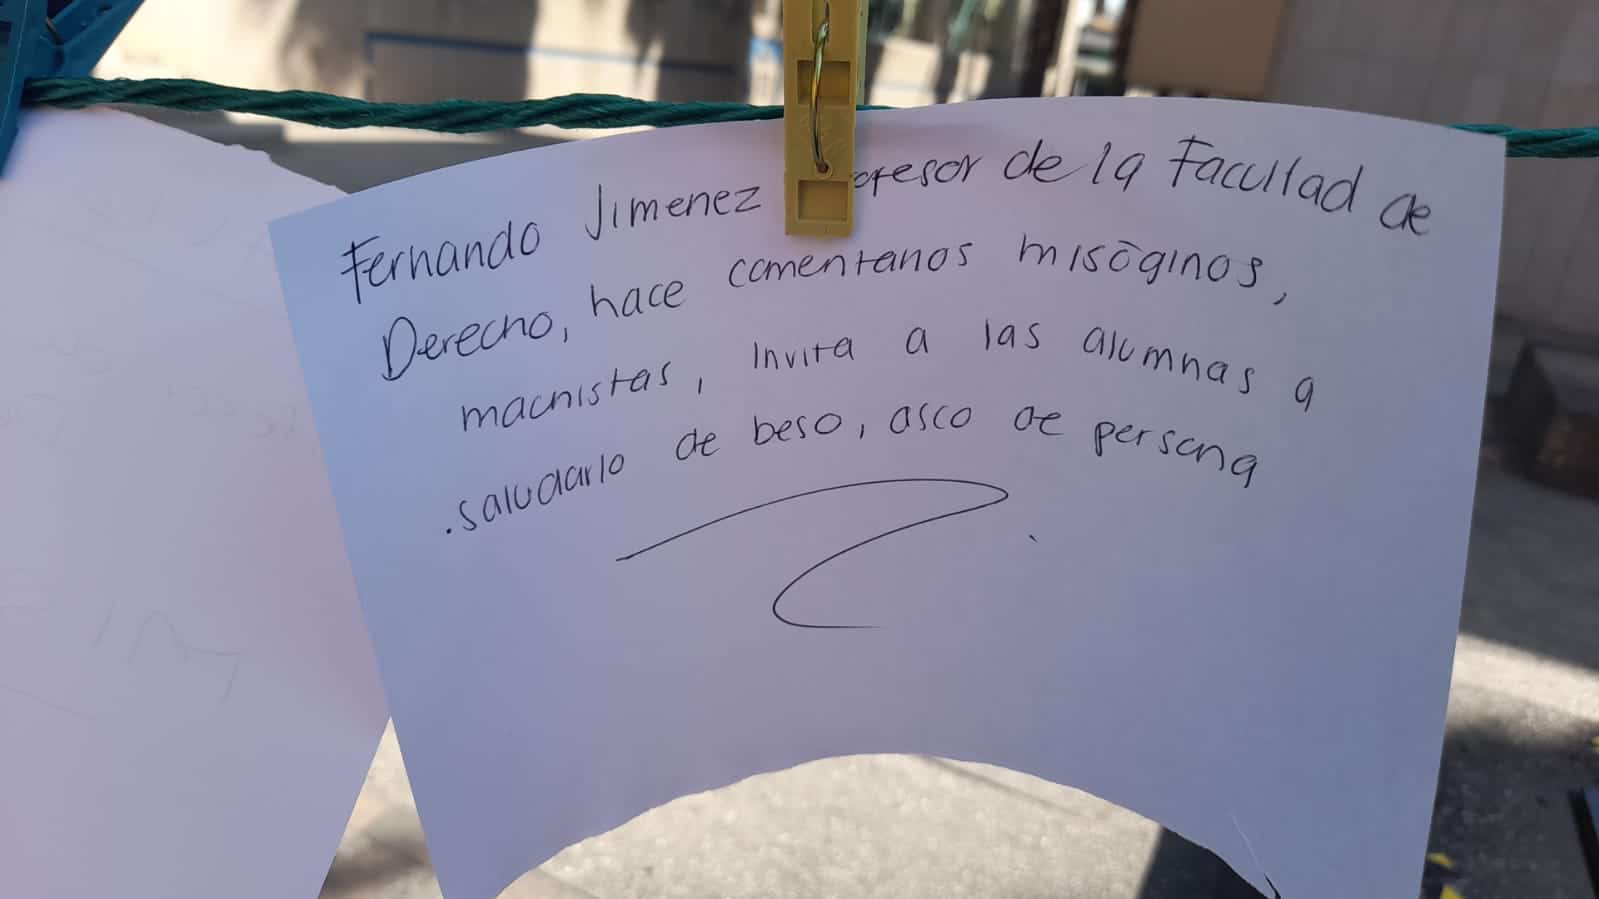 Fernando Jimenez ofesor de la Facultad de
Derecho, hace comentarios misóginos,
machistas, invita a las alumnas a
.saludarlo de beso, asco de persona